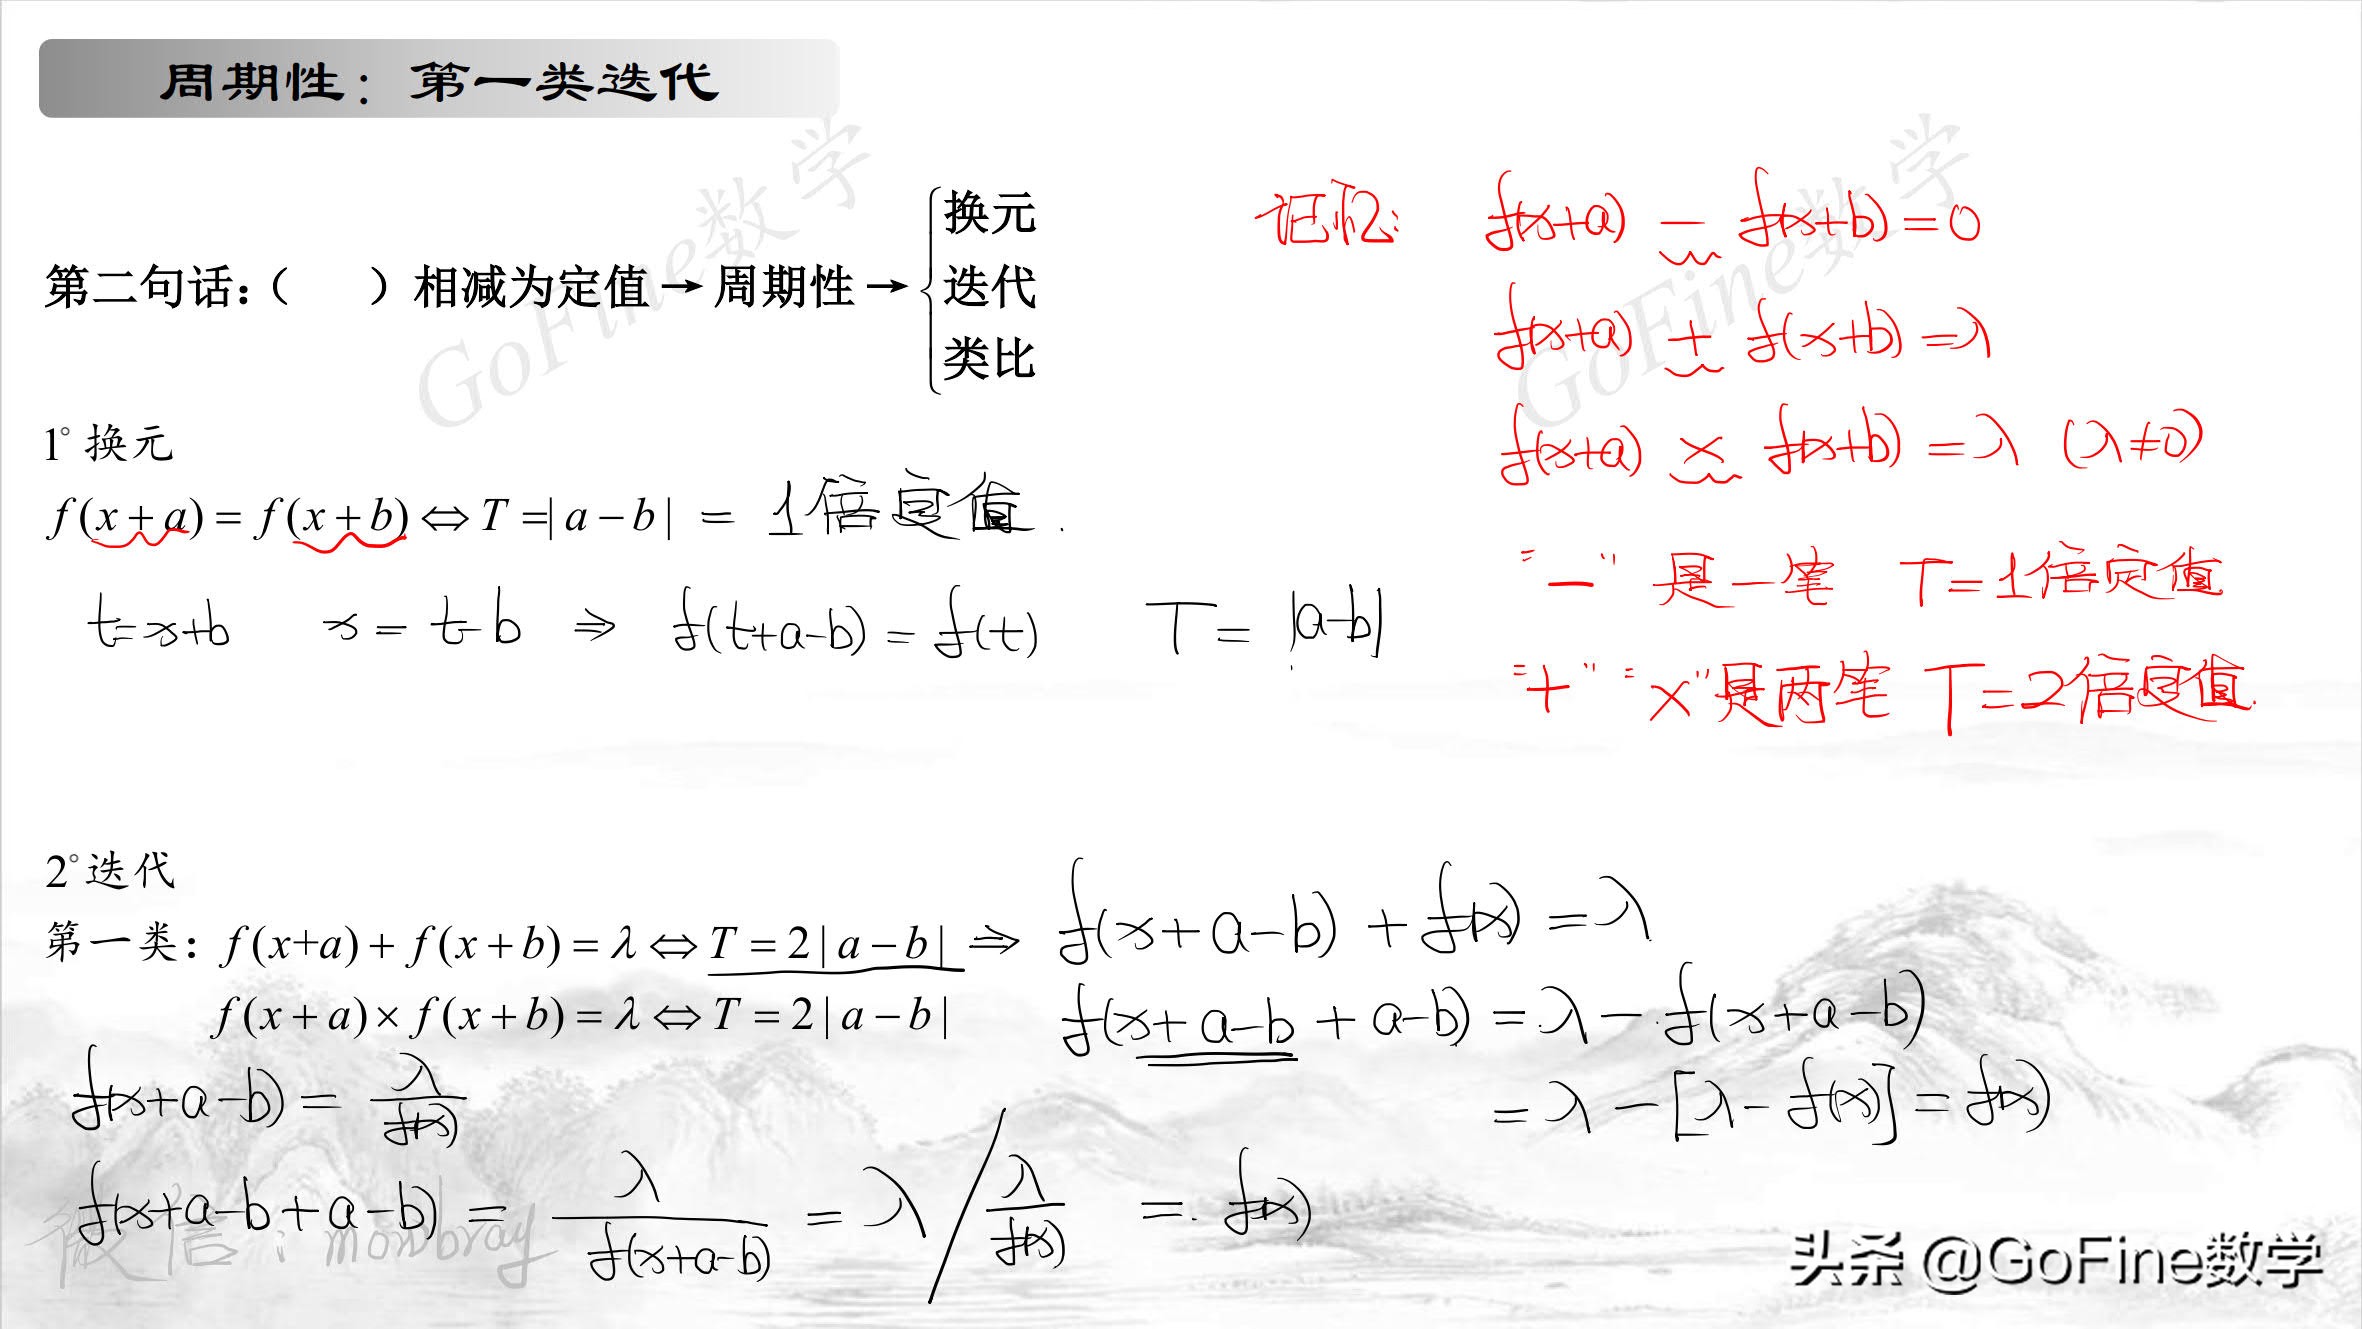 周期性：第一类迭代
第二句话：（ ）相减为定值→周期性→{换元 迭代 类比
记忆： f(x+a) − f(x+b)=0
f(x+a) + f(x+b)=λ
f(x+a) × f(x+b)=λ (λ≠0)
"−" 是一笔 T=1倍定值
"+" "×"是两笔 T=2倍定值.
1° 换元
f(x+a)=f(x+b)⇔T=|a−b| = 1倍定值.
t=x+b x=t−b ⇒ f(t+a−b)=f(t) T=|a−b|
2°迭代
第一类：f(x+a)+f(x+b)=λ⇔T=2|a−b| ⇒ f(x+a−b)+f(x)=λ
f(x+a)×f(x+b)=λ⇔T=2|a−b| f(x+a−b+a−b)=λ−f(x+a−b)
=λ−[λ−f(x)]=f(x)
f(x+a−b)=λ/f(x)
f(x+a−b+a−b)=λ/f(x+a−b)=λ/(λ/f(x))=f(x)
微信：monbray
头条 @GoFine数学
GoFine数学
GoFine数学